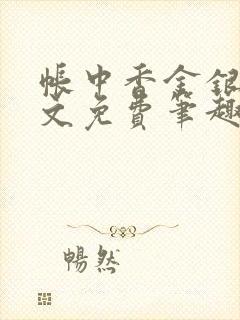 帐中香金银
文免费笔趣
畅然